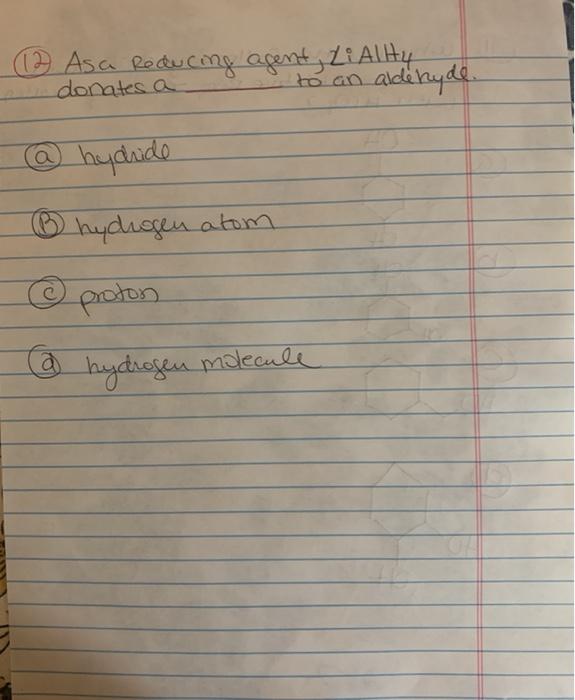 (12) As a Reducing agent, LiAlH4
donates a ________ to an aldehyde.
(a) hydride
(B) hydrogen atom
(c) proton
(d) hydrogen molecule